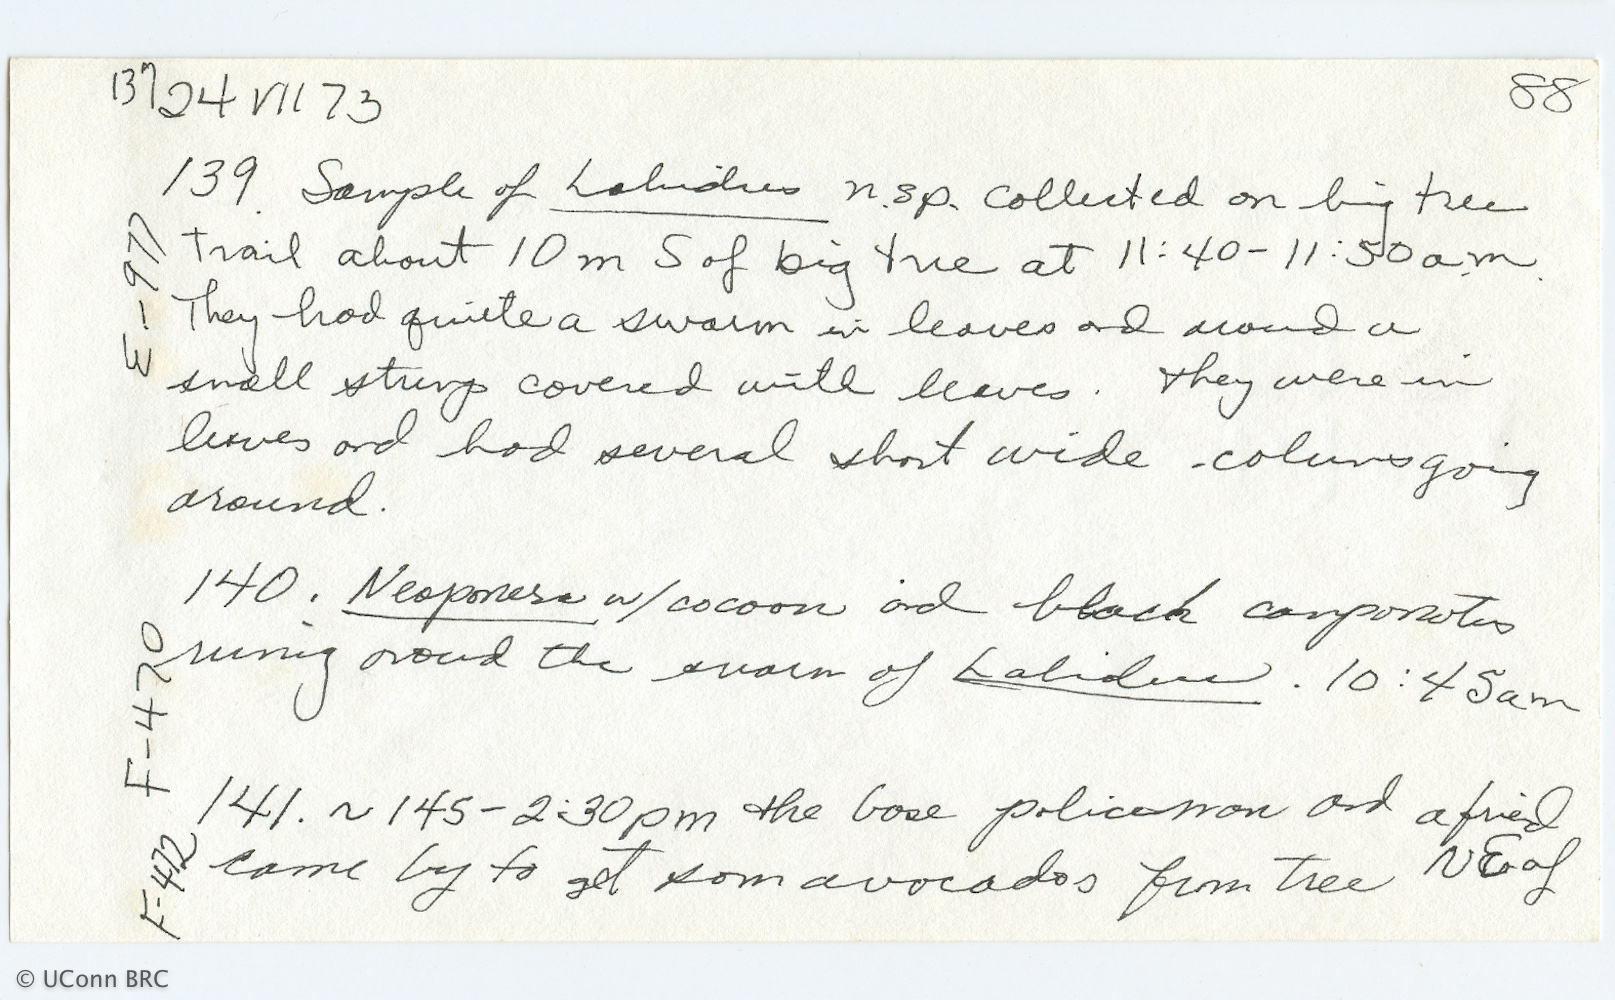 137 24 VII 73
88
139. Sample of Labidus n.sp. collected on big tree
trail about 10 m S of big tree at 11:40-11:50 a.m.
They had quite a swarm in leaves and around a
small stump covered with leaves. They were in
leaves and had several short wide columsgoing
around.
E-977
140. Neoponera w/cocoon and black camponotus
runnig around the swarm of Labidus. 10:45am
F-470
141. ~ 145-2:30pm the base policeman and a fried
came by to get som avocados from tree NE of
F-472
© UConn BRC